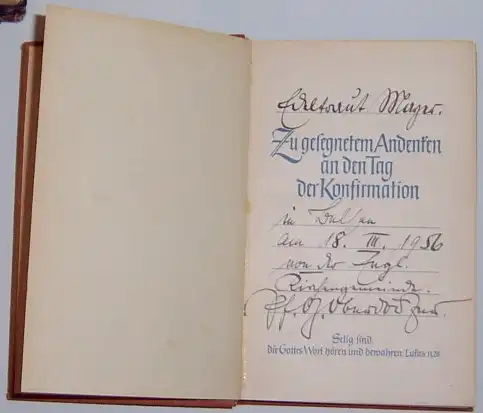 Edeltraut Mayer.
Zu gesegnetem Andenken
an den Tag
der Konfirmation
in
am 18. III. 1956
von der Evgl.
Kirchengemeinde.
Pf.
Selig sind,
die Gottes Wort hören und bewahren. Lukas 11,28